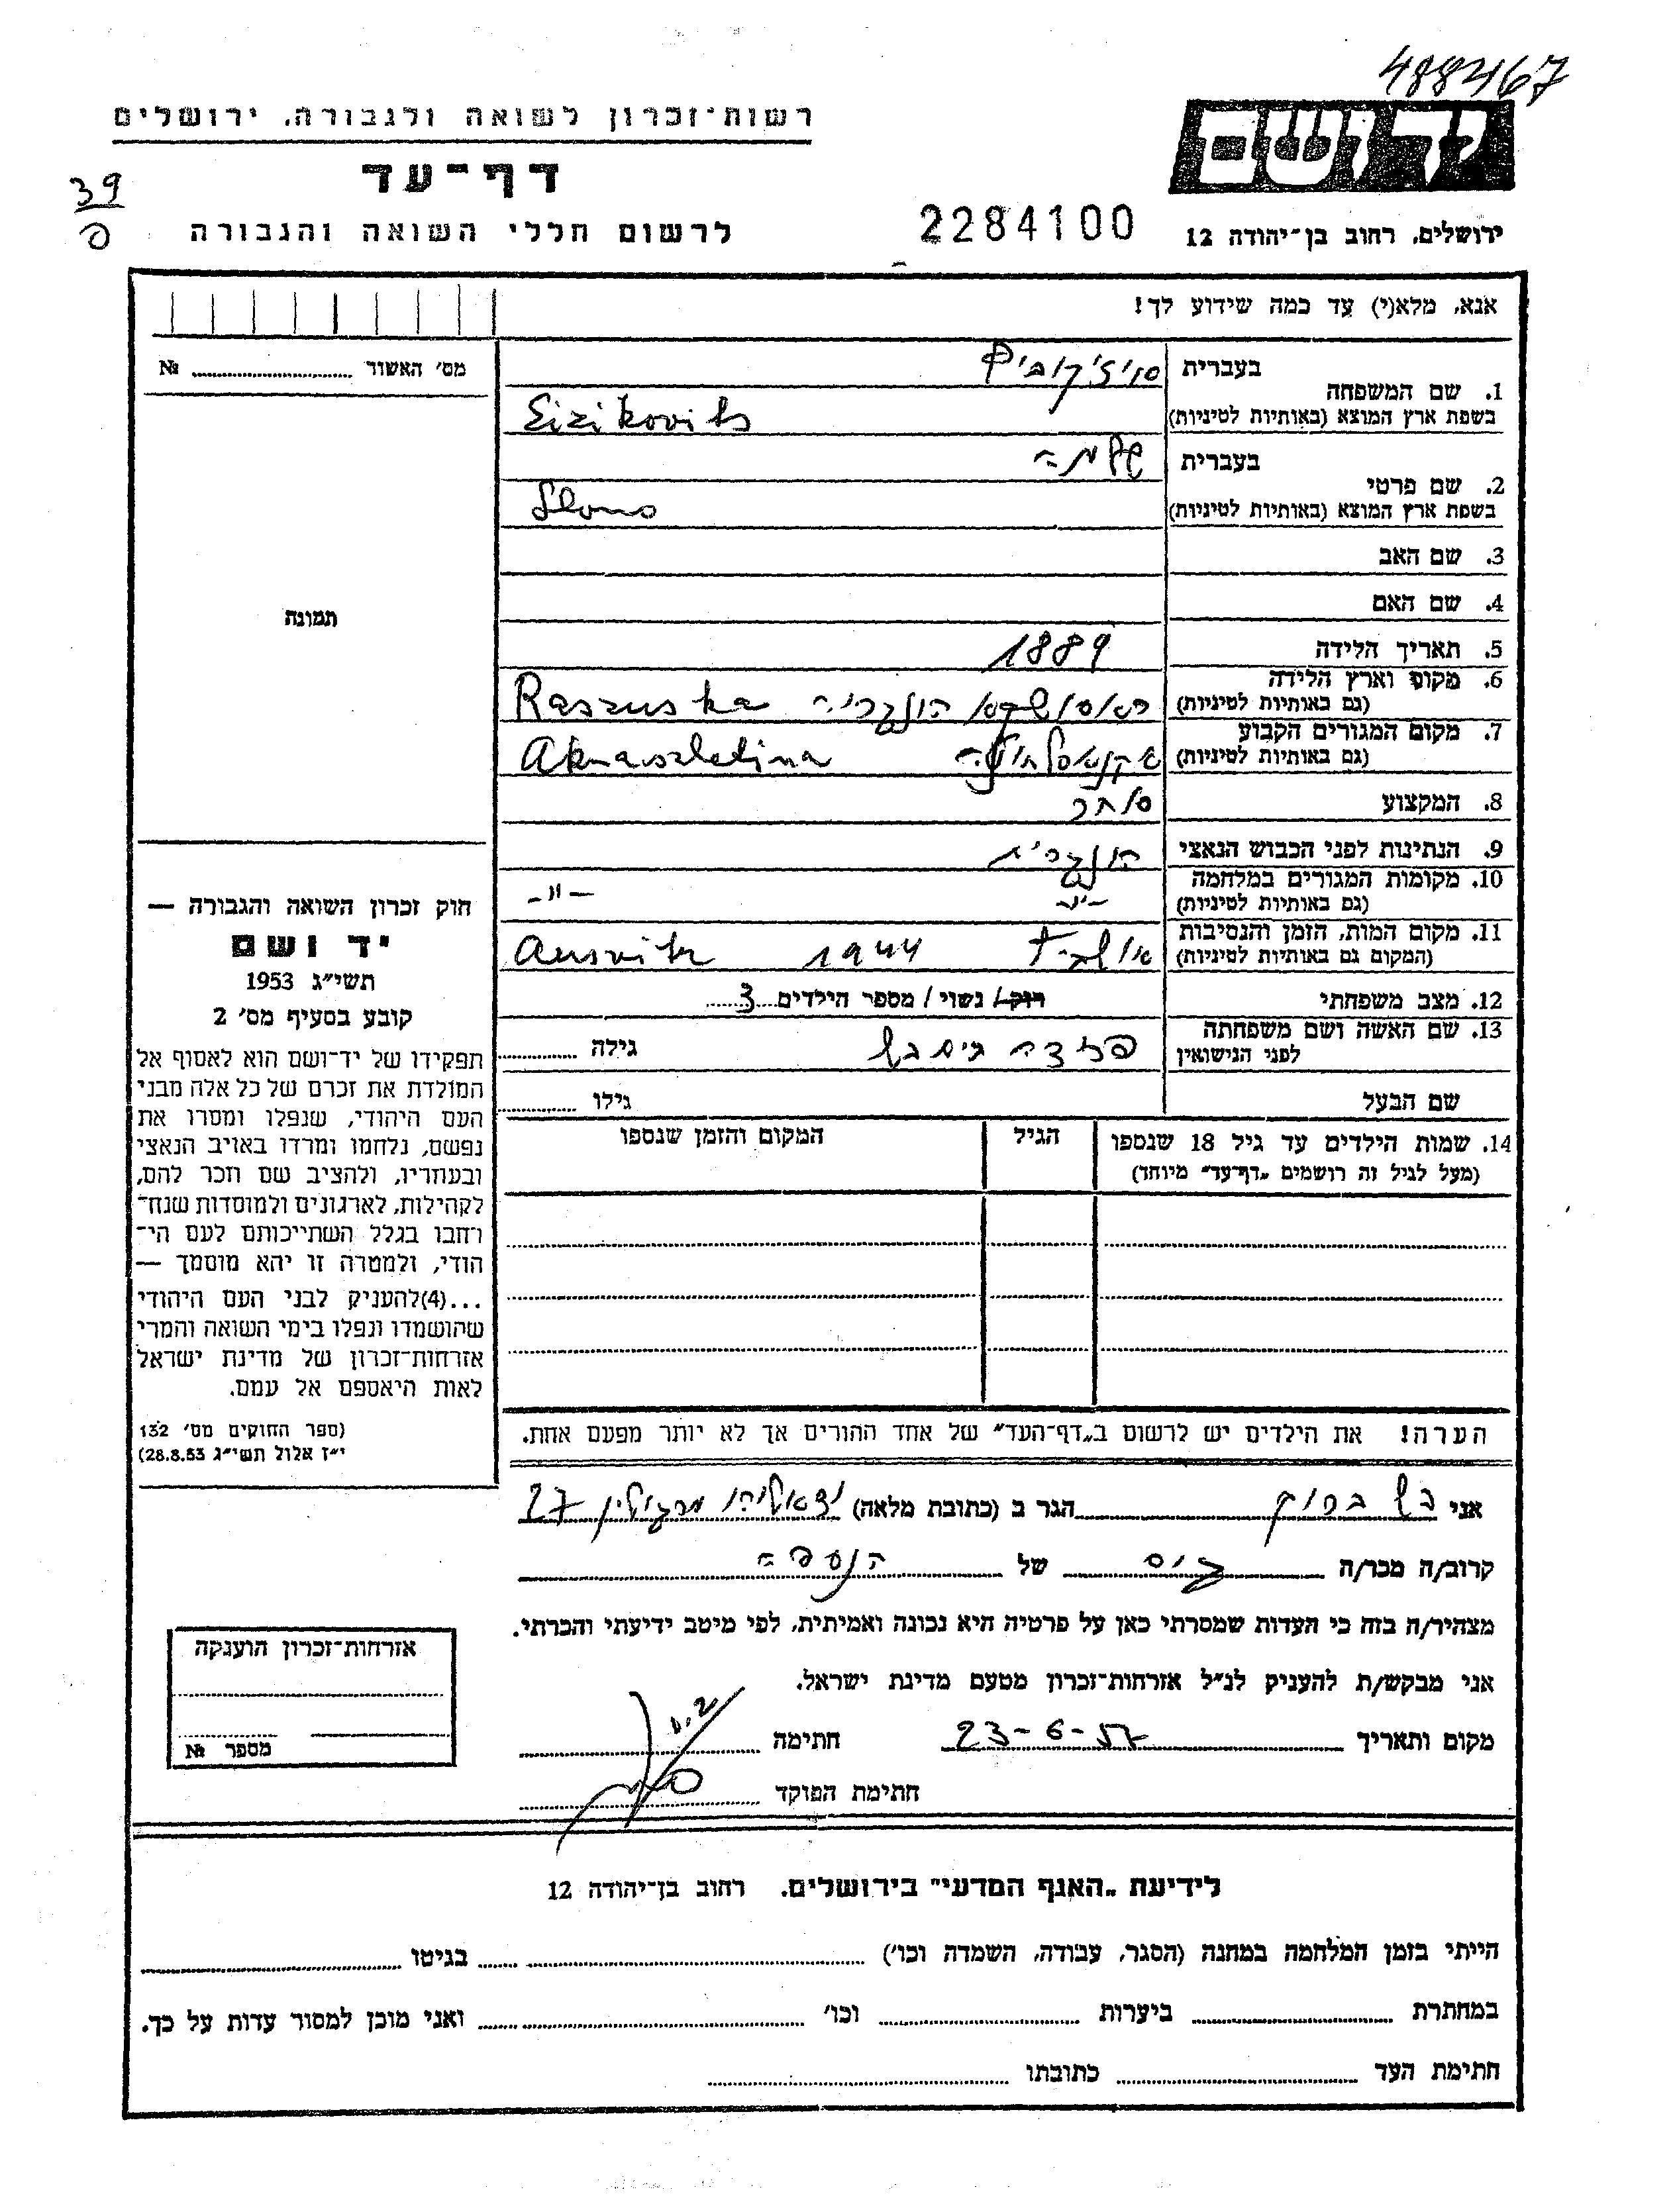 488467
רשות־זכרון לשואה ולגבורה, ירושלים
יד ושם
דף־עד
39
לרשום חללי השואה והגבורה
2284100
ירושלים, רחוב בן־יהודה 12
אנא, מלא(י) עד כמה שידוע לך!
מס׳ האשור № 
1. שם המשפחה
בעברית
בשפת ארץ המוצא (באותיות לטיניות) Eizikovits
2. שם פרטי
בעברית שלמה
בשפת ארץ המוצא (באותיות לטיניות) Slomo
3. שם האב
4. שם האם
תמונה
5. תאריך הלידה 1889
6. מקום וארץ הלידה
(גם באותיות לטיניות) הונגריה Raszuska
7. מקום המגורים הקבוע
(גם באותיות לטיניות) Aknaszletina
8. המקצוע סוחר
9. הנתינות לפני הכבוש הנאצי הונגרית
10. מקומות המגורים במלחמה
(גם באותיות לטיניות) -"- -"-
11. מקום המות, הזמן והנסיבות
(המקום גם באותיות לטיניות) אושביץ 1944 Ausvitz
12. מצב משפחתי רוק/ נשוי / מספר הילדים 3
13. שם האשה ושם משפחתה
לפני הנישואין גילה
שם הבעל גילו
14. שמות הילדים עד גיל 18 שנספו
(מעל לגיל זה רושמים „דף־עד" מיוחד)
הגיל
המקום והזמן שנספו
חוק זכרון השואה והגבורה —
יד ושם
תשי״ג 1953
קובע בסעיף מס׳ 2
תפקידו של יד־ושם הוא לאסוף אל
המולדת את זכרם של כל אלה מבני
העם היהודי, שנפלו ומסרו את
נפשם, נלחמו ומרדו באויב הנאצי
ובעוזריו, ולהציב שם וזכר להם,
לקהילות, לארגונים ולמוסדות שנח־
רחבו בגלל השתייכותם לעם הי־
הודי, ולמטרה זו יהא מוסמך —
...(4) להעניק לבני העם היהודי
שהושמדו ונפלו בימי השואה והמרי
אזרחות־זכרון של מדינת ישראל
לאות היאספם אל עמם.
(ספר החוקים מס׳ 132
י״ז אלול תשי״ג 28.8.53)
הערה! את הילדים יש לרשום ב„דף־העד" של אחד ההורים אך לא יותר מפעם אחת.
אני הגר ב (כתובת מלאה) 27
קרוב/ה מכר/ה גיס של הנספה
מצהיר/ה בזה כי העדות שמסרתי כאן על פרטיה היא נכונה ואמיתית, לפי מיטב ידיעתי והכרתי.
אני מבקש/ת להעניק לנ״ל אזרחות־זכרון מטעם מדינת ישראל.
מקום ותאריך 23-6-57 חתימה
חתימת הפוקד
אזרחות־זכרון הוענקה
מספר №
לידיעת „האגף המדעי" בירושלים, רחוב בן־יהודה 12
הייתי בזמן המלחמה במחנה (הסגר, עבודה, השמדה וכו׳) בגיטו
במחתרת ביערות וכו׳ ואני מוכן למסור עדות על כך.
חתימת העד כתובתו